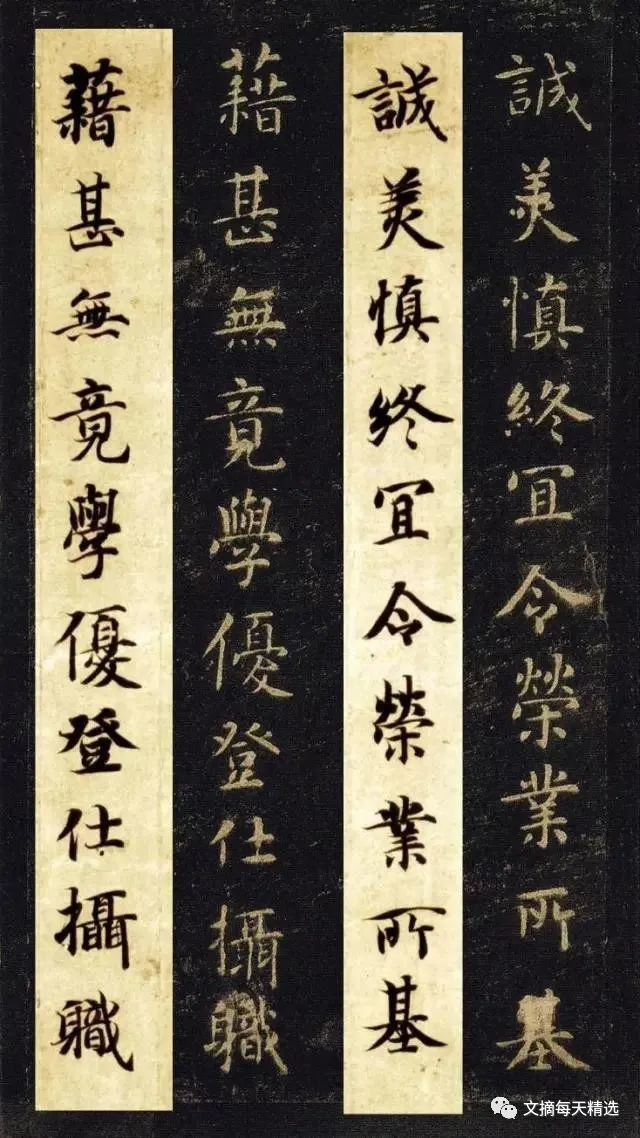 誠美慎終冝令榮業所基
誠美慎終冝令榮業所基
藉甚無竟學優登仕攝軄
藉甚無竟學優登仕攝軄
文摘每天精选